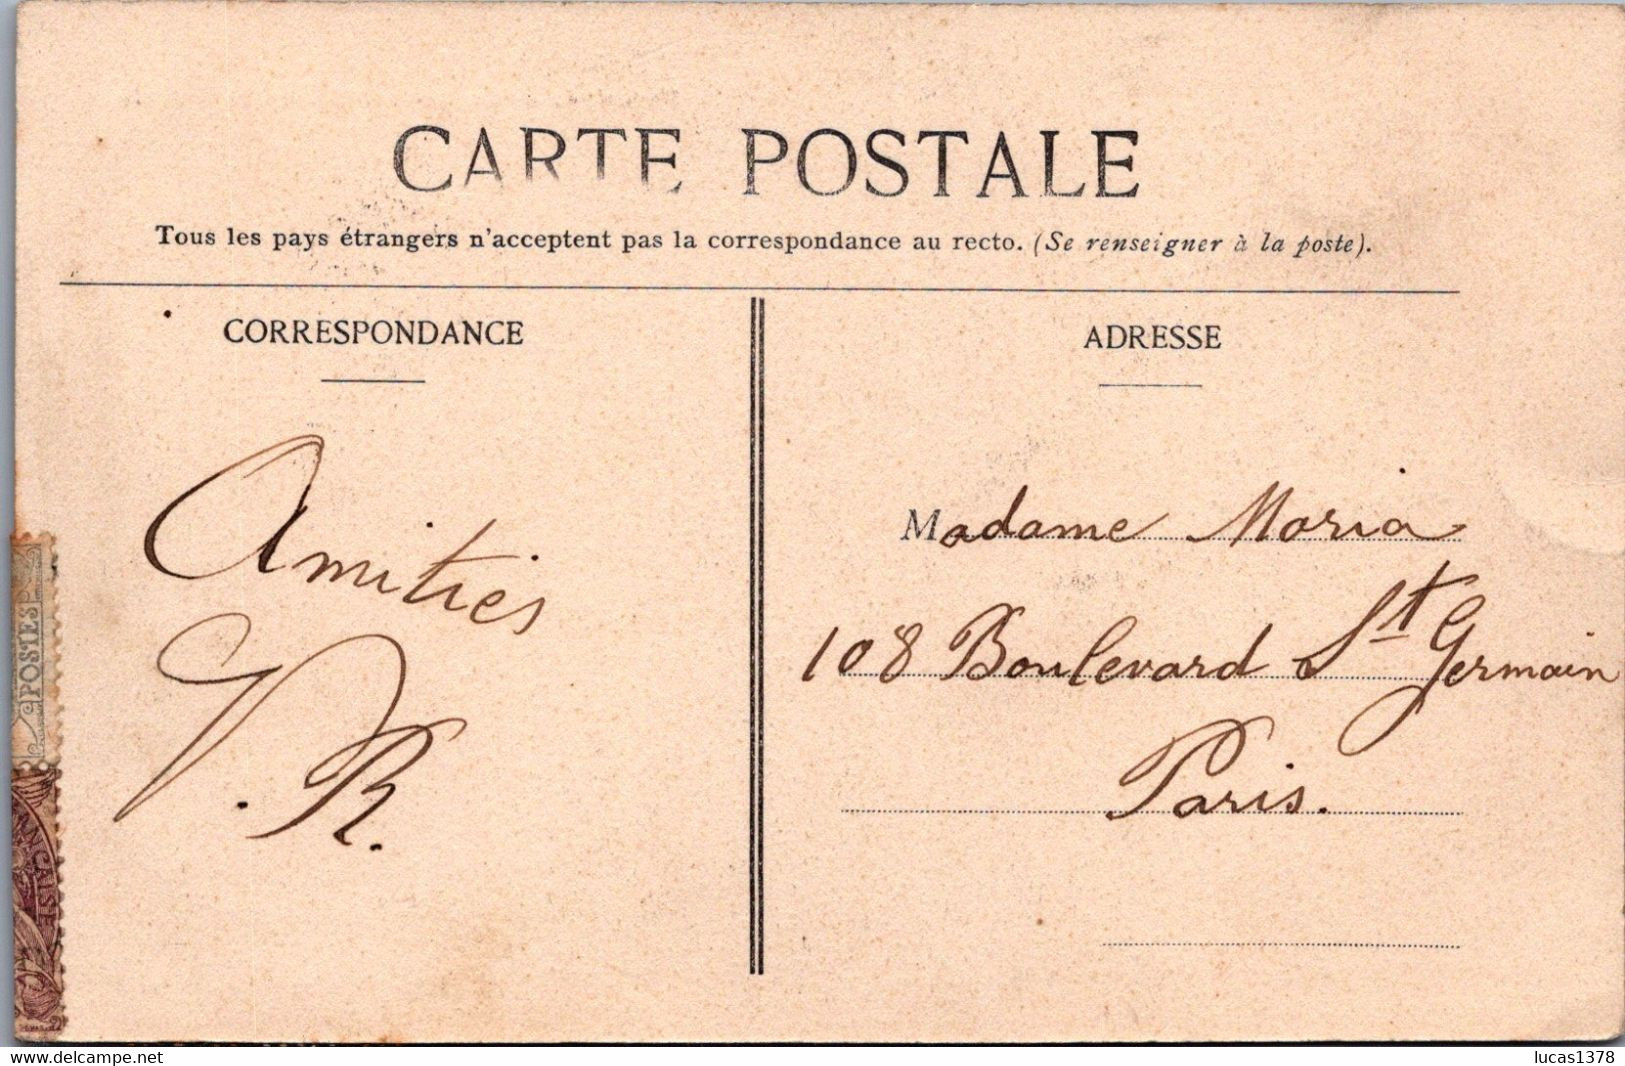 CARTE POSTALE
Tous les pays étrangers n'acceptent pas la correspondance au recto. (Se renseigner à la poste).
CORRESPONDANCE
ADRESSE
Amitiés
V. R.
Madame Maria
108 Boulevard St Germain
Paris.
POSTES
ANÇAISE
delcampe.net
lucas1378